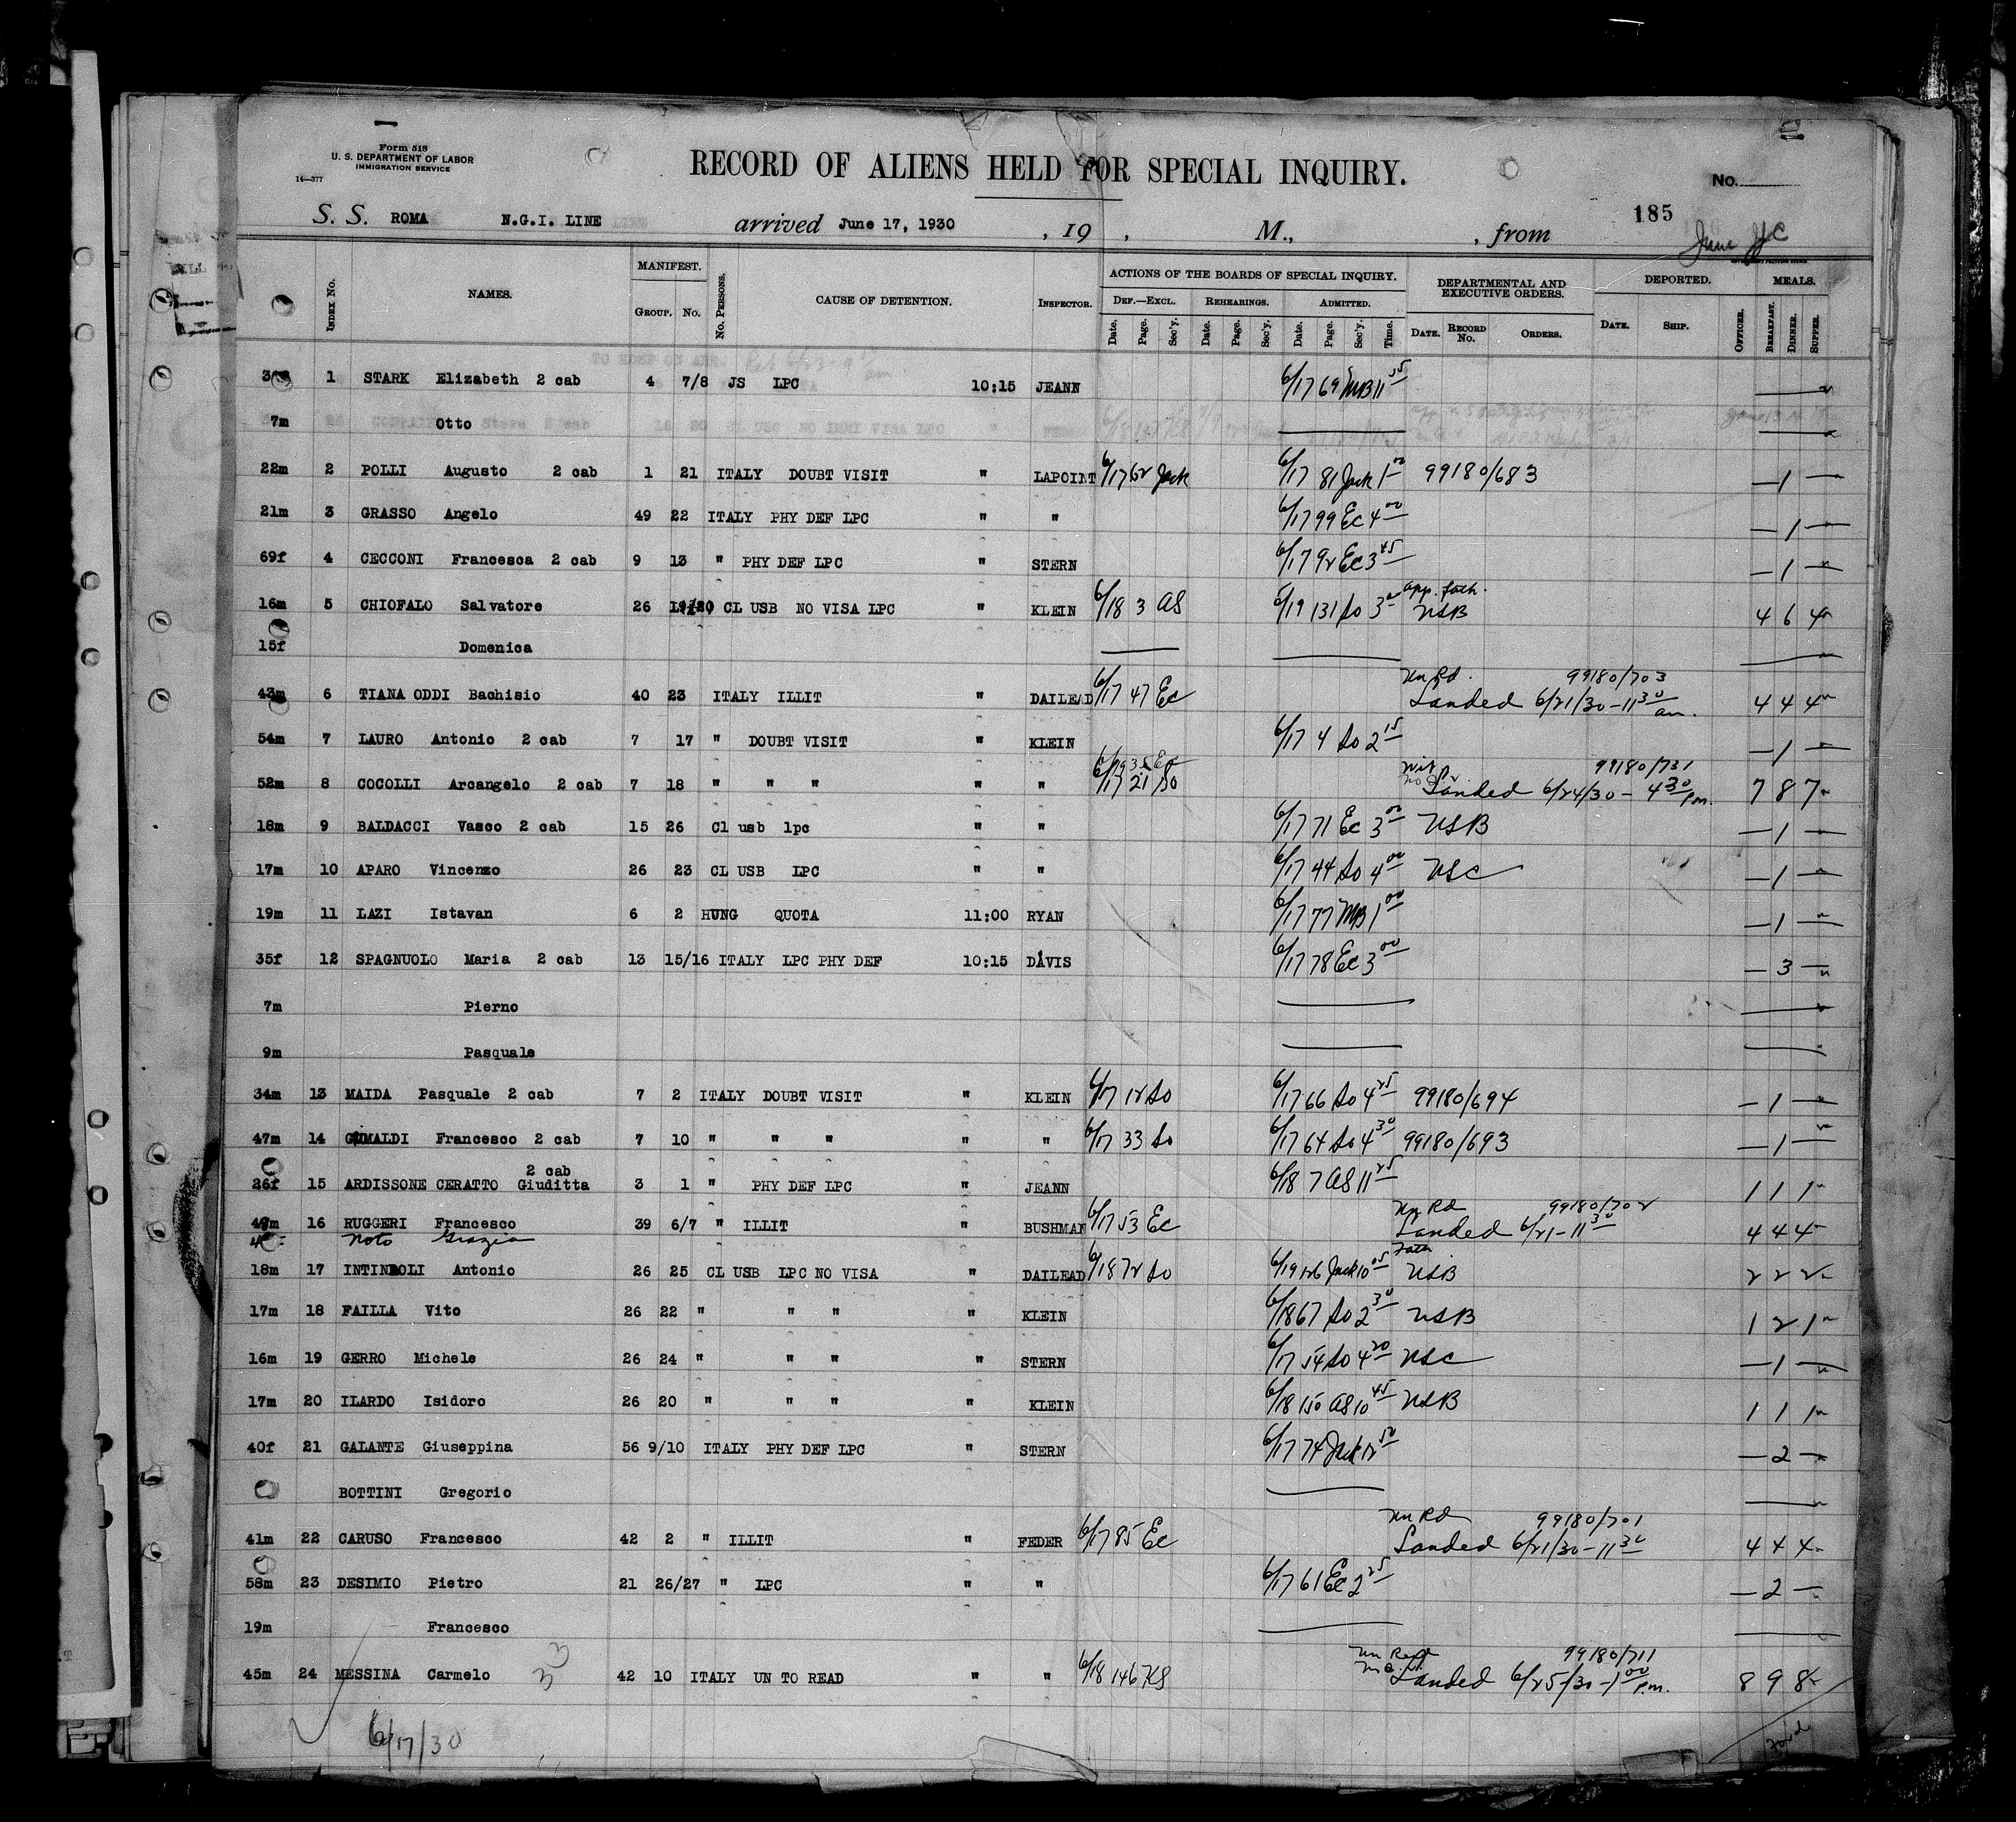 Form 518
U. S. DEPARTMENT OF LABOR
IMMIGRATION SERVICE
14—377
RECORD OF ALIENS HELD FOR SPECIAL INQUIRY.
No.
185
S. S. ROMA N.G.I. LINE arrived June 17, 1930 , 19 , M., , from
June
INDEX No. NAMES. MANIFEST. GROUP. No. No. PERSONS. CAUSE OF DETENTION. INSPECTOR. ACTIONS OF THE BOARDS OF SPECIAL INQUIRY. DEF.—EXCL. REHEARINGS. ADMITTED. Date. Page. Sec'y. Date. Page. Sec'y. Date. Page. Sec'y. Time. DEPARTMENTAL AND EXECUTIVE ORDERS. DATE. RECORD No. ORDERS. DEPORTED. DATE. SHIP. OFFICER. MEALS. BREAKFAST. DINNER. SUPPER.
1 STARK Elizabeth 2 cab 4 7/8 JS LPC 10:15 JEANN 6/17 69 MB 11 55
7m Otto
22m 2 POLLI Augusto 2 cab 1 21 ITALY DOUBT VISIT " LAPOINT 6/17 62 Jack 6/17 81 Jack 1 00 99180/683 — 1 —
21m 3 GRASSO Angelo 49 22 ITALY PHY DEF LPC " " 6/17 99 Ec 4 00 — 1 —
69f 4 CECCONI Francesca 2 cab 9 13 " PHY DEF LPC " STERN 6/17 92 Ec 3 45 — 1 —
16m 5 CHIOFALO Salvatore 26 19/20 CL USB NO VISA LPC " KLEIN 6/18 3 AS 6/19 131 So 3 00 app. fath. USB 4 6 4
15f Domenica
43m 6 TIANA ODDI Bachisio 40 23 ITALY ILLIT " DAILEAD 6/17 47 Ec Un Rd. 99180/703 Landed 6/21/30 - 11 30 am. 4 4 4
54m 7 LAURO Antonio 2 cab 7 17 " DOUBT VISIT " KLEIN 6/17 4 So 2 15 — 1 —
52m 8 COCOLLI Arcangelo 2 cab 7 18 " " " " " 6/17 21 So 99180/731 Landed 6/24/30 - 4 30 P.m. 7 8 7
18m 9 BALDACCI Vasco 2 cab 15 26 Cl usb lpc " " 6/17 71 Ec 3 00 USB — 1 —
17m 10 APARO Vincenzo 26 23 CL USB LPC " " 6/17 44 So 4 00 USC — 1 —
19m 11 LAZI Istavan 6 2 HUNG QUOTA 11:00 RYAN 6/17 77 MB 1 00 — 1 —
35f 12 SPAGNUOLO Maria 2 cab 13 15/16 ITALY LPC PHY DEF 10:15 DAVIS 6/17 78 Ec 3 00 — 3 —
7m Pierno
9m Pasquale
34m 13 MAIDA Pasquale 2 cab 7 2 ITALY DOUBT VISIT " KLEIN 6/17 12 So 6/17 66 So 4 25 99180/694 — 1 —
47m 14 GIMALDI Francesco 2 cab 7 10 " " " " " 6/17 33 So 6/17 64 So 4 30 99180/693 — 1 —
26f 15 ARDISSONE CERATTO Giuditta 2 cab 3 1 " PHY DEF LPC " JEANN 6/18 7 AS 11 25 1 1 1
16 RUGGERI Francesco 39 6/7 " ILLIT " BUSHMAN 6/17 53 Ec Un Rd 99180/702 Landed 6/21 - 11 30 4 4 4
Noto Grazia
18m 17 INTINDOLI Antonio 26 25 CL USB LPC NO VISA " DAILEAD 6/18 72 So 6/19 126 Jack 10 05 Fath USB 2 2 2
17m 18 FAILLA Vito 26 22 " " " " KLEIN 6/18 67 So 2 30 USB 1 2 1
16m 19 GERRO Michele 26 24 " " " " STERN 6/17 54 So 4 20 USC — 1 —
17m 20 ILARDO Isidoro 26 20 " " " " KLEIN 6/18 150 AS 10 45 USB 1 1 1
40f 21 GALANTE Giuseppina 56 9/10 ITALY PHY DEF LPC " STERN 6/17 74 Jack 12 50 — 2 —
BOTTINI Gregorio
41m 22 CARUSO Francesco 42 2 " ILLIT " FEDER 6/17 85 Ec Un Rd 99180/701 Landed 6/21/30 - 11 30 4 4 4
58m 23 DESIMIO Pietro 21 26/27 " LPC " " 6/17 61 Ec 2 25 — 2 —
19m Francesco
45m 24 MESSINA Carmelo 42 10 ITALY UN TO READ " " 6/18 146 KS Un Read 99180/711 Landed 6/25/30 - 1 00 P.m. 8 9 8
33
6/17/30